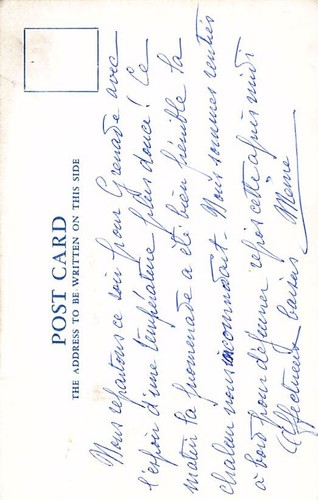 POST CARD
THE ADDRESS TO BE WRITTEN ON THIS SIDE
Nous repartons ce soir pour Grenade avec
l'espoir d'une température plus douce! Ce
matin la promenade a été bien pénible la
chaleur nous incommodant - Nous sommes rentrés
à bord pour déjeuner repos cette après midi
Affectueux baisers